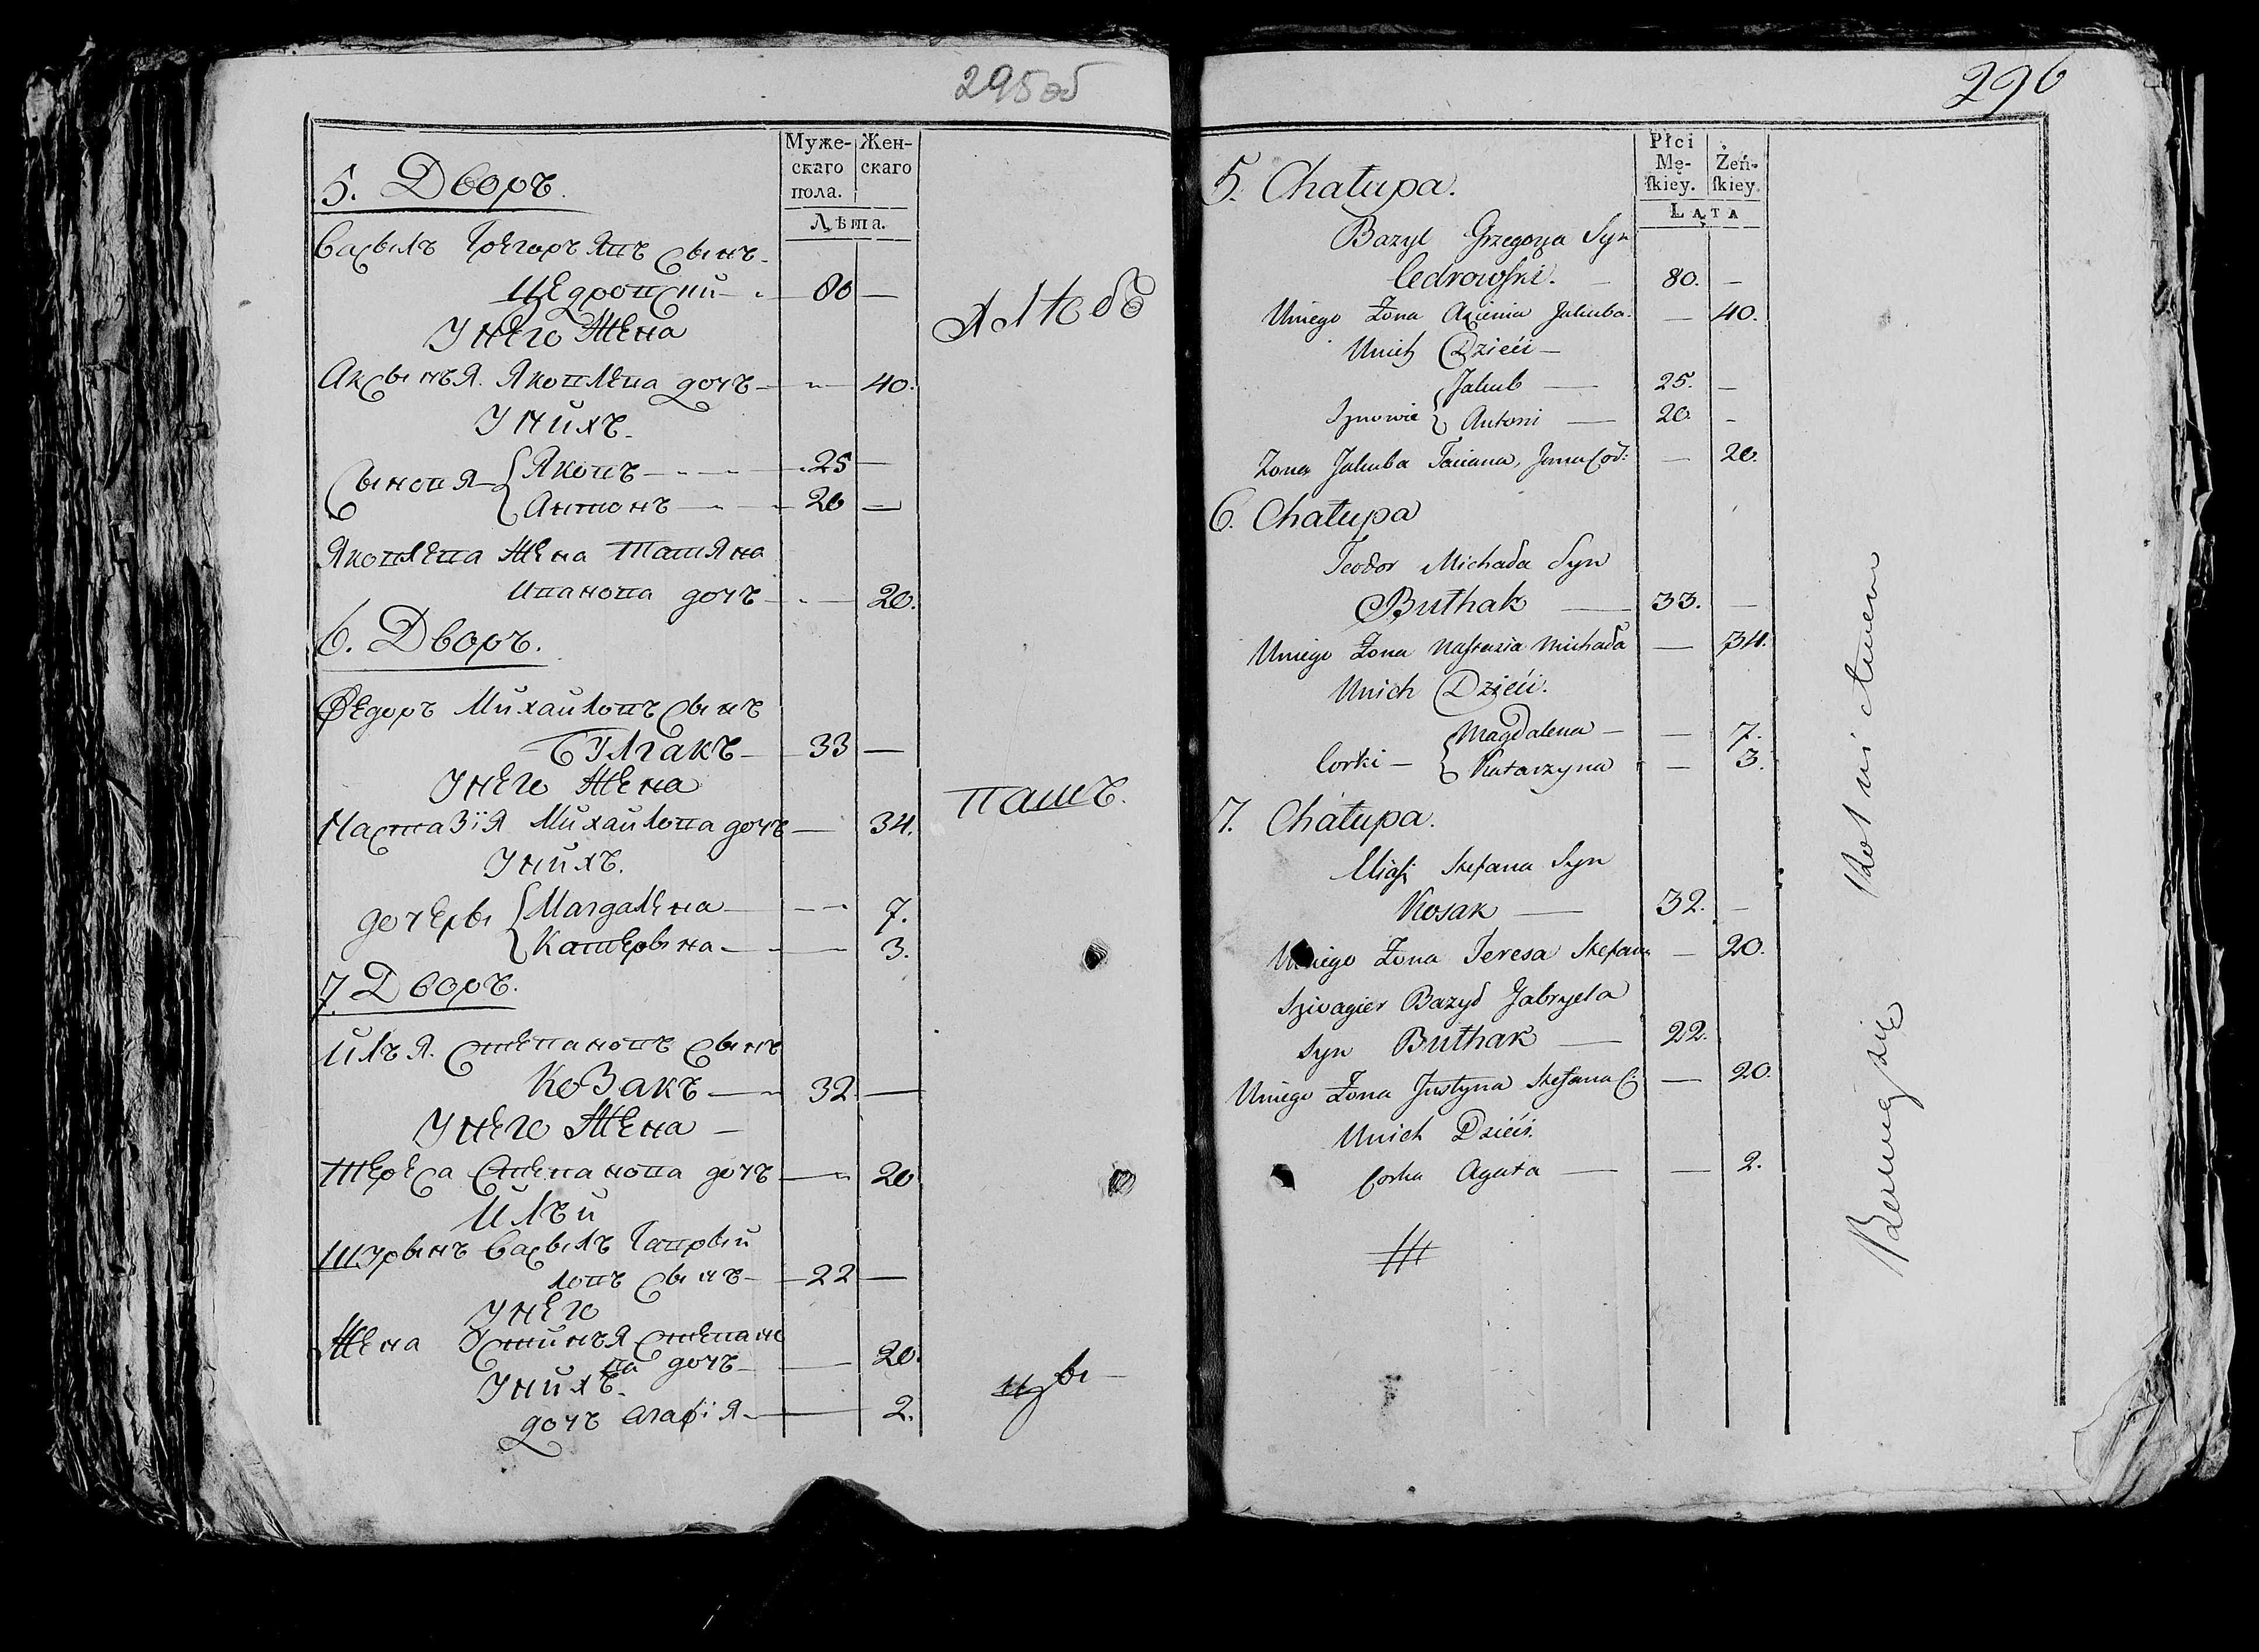 295об
Муже-
скаго
пола.
Жен-
скаго
Лѣта.
5. Дворъ.
Василъ Грегоръявъ сынъ
Цедровский 80
У него Жена
Аксынъя Яковлева дочъ 40.
У нихъ
Сыновя { Яковъ 25
Антонъ 20
Яковлева Жена Татяна
Иванова дочъ 20.
6. Дворъ.
Федоръ Михайловъ сынъ
Булгакъ 33
У него Жена
Настазія Михайлова дочъ 34.
У нихъ.
дочеры { Магдалена 7.
Катерына 3.
7. Дворъ.
Илъя Степановъ сынъ
Козакъ 32
У него Жена
Тереса Степанова дочъ 20
Илъи
Шурынъ Василъ Гаврый
ловъ сынъ 22
У него
Жена Устинъя Степано
ва дочъ 20.
У нихъ.
дочъ Агафія 2.
296
Płci
Mę-
ſkiey.
Żeń-
ſkiey.
Lata
5. Chałupa.
Bazyl Grzegorza Syn
Cedrowſki. 80. –
Uniego Żona Axienia Jakuba. – 40.
Unich Dzieći
Synowie { Jakub 25. –
Antoni 20. –
Żona Jakuba Taciana, Jana Cor: – 20.
6. Chałupa
Teodor Michała Syn
Bułhak 33. –
Uniego Żona Nastazia Michała – 34.
Unich Dzieći.
Corki { Magdalena – 7.
Katarzyna – 3.
7. Chałupa.
Eliasz Stefana Syn
Kosak 32. –
Uniego Żona Teresa Stefana – 20.
Szwagier Bazyl Gabryela
Syn Bułhak 22.
Uniego Żona Justyna Stefana C. – 20.
Unich Dzieći.
Corka Agata – 2.